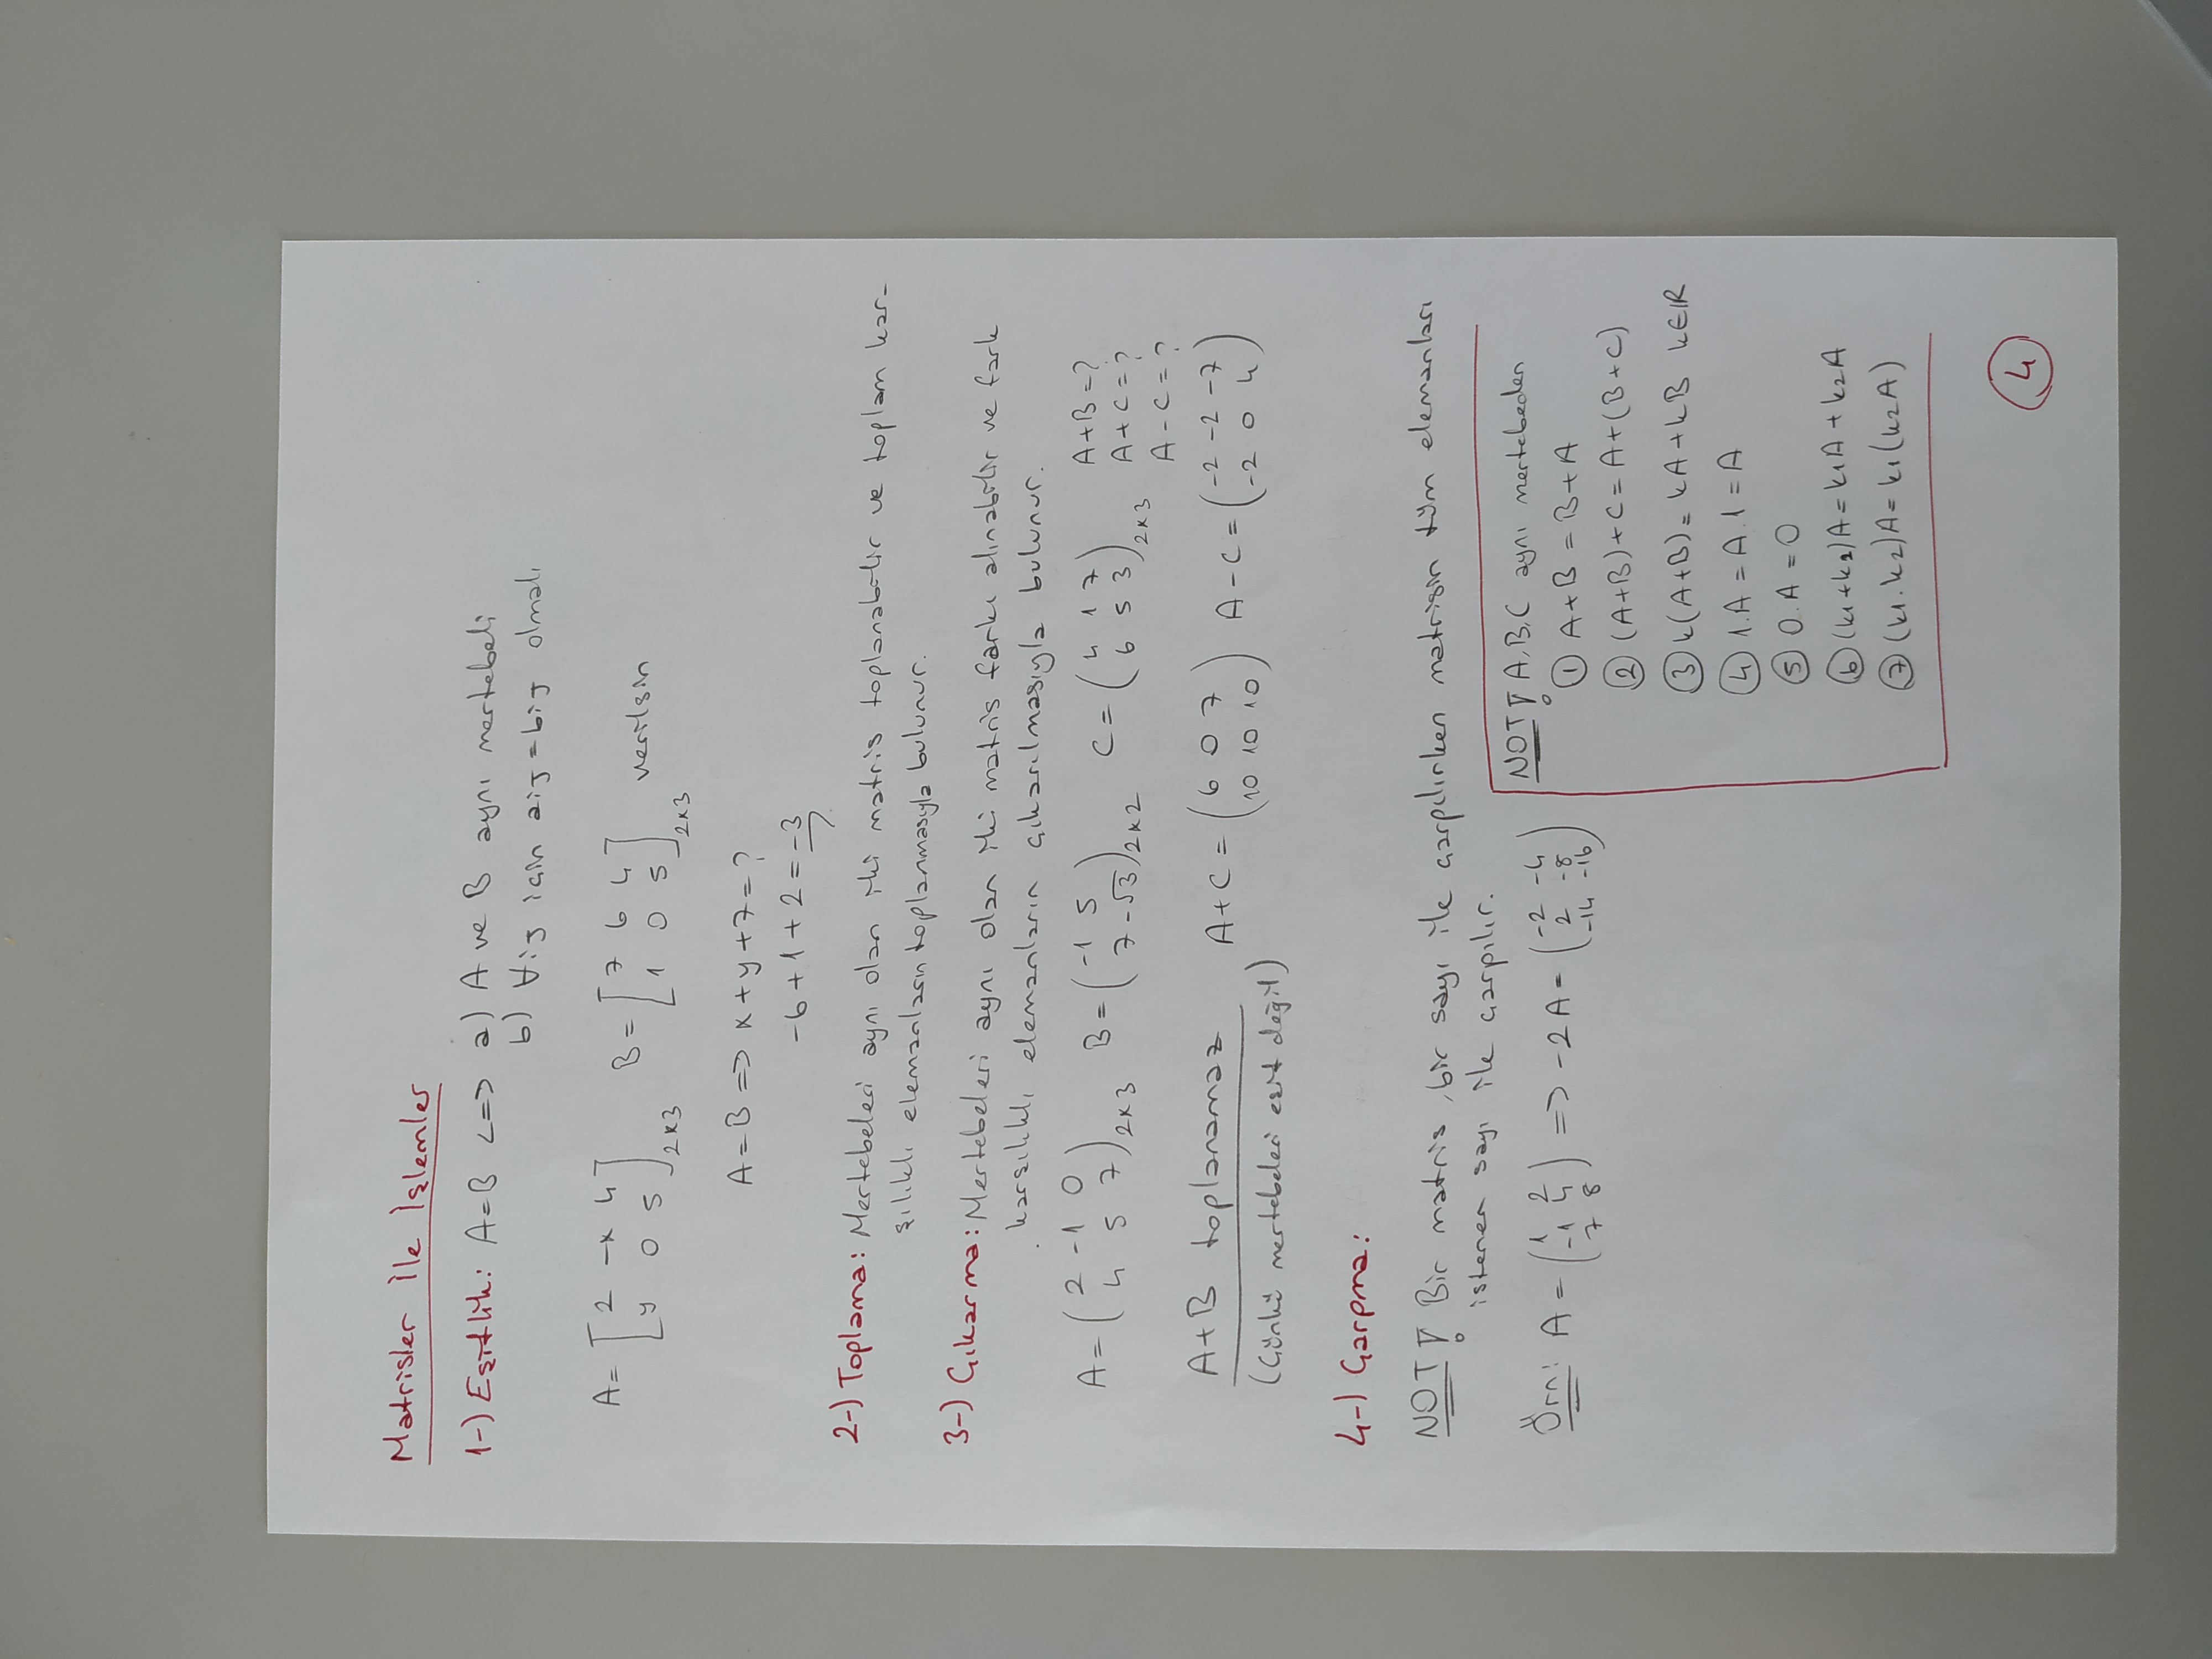 Matrisler İle İşlemler
1-) Eşitlik: A=B <=> a) A ve B aynı mertebeli
b) ∀ij için aij=bij olmalı
A= [2 -x 4; y 0 5]2x3 B= [z 6 4; 1 0 5]2x3 verilsin
A=B => x+y+z=?
-6+1+2=-3
2-) Toplama: Mertebeleri aynı olan iki matris toplanabilir ve toplam kar-
şılıklı elemanların toplanmasıyla bulunur.
3-) Çıkarma: Mertebeleri aynı olan iki matris farkı alınabilir ve fark
karşılıklı elemanların çıkarılmasıyla bulunur.
A= (2 -1 0; 4 5 7)2x3 B= (-1 5; 7 -√3)2x2 C= (4 1 7; 6 5 3)2x3 A+B=?
A+C=?
A-C=?
A+B toplanamaz A+C= (6 0 7; 10 10 10) A-C= (-2 -2 -7; -2 0 4)
(Çünkü mertebeleri eşit değil)
4-) Çarpma:
NOT! Bir matris, bir sayı ile çarpılırken matrisin tüm elemanları
istenen sayı ile çarpılır.
Örn: A= (1 2; -1 4; 7 8) => -2A= (-2 -4; 2 -8; -14 -16)
NOT! A,B,C aynı mertebeden
① A+B=B+A
② (A+B)+C=A+(B+C)
③ k(A+B)=kA+kB k∈IR
④ 1.A=A.1=A
⑤ 0.A=0
⑥ (k1+k2)A=k1A+k2A
⑦ (k1.k2)A=k1(k2A)
4